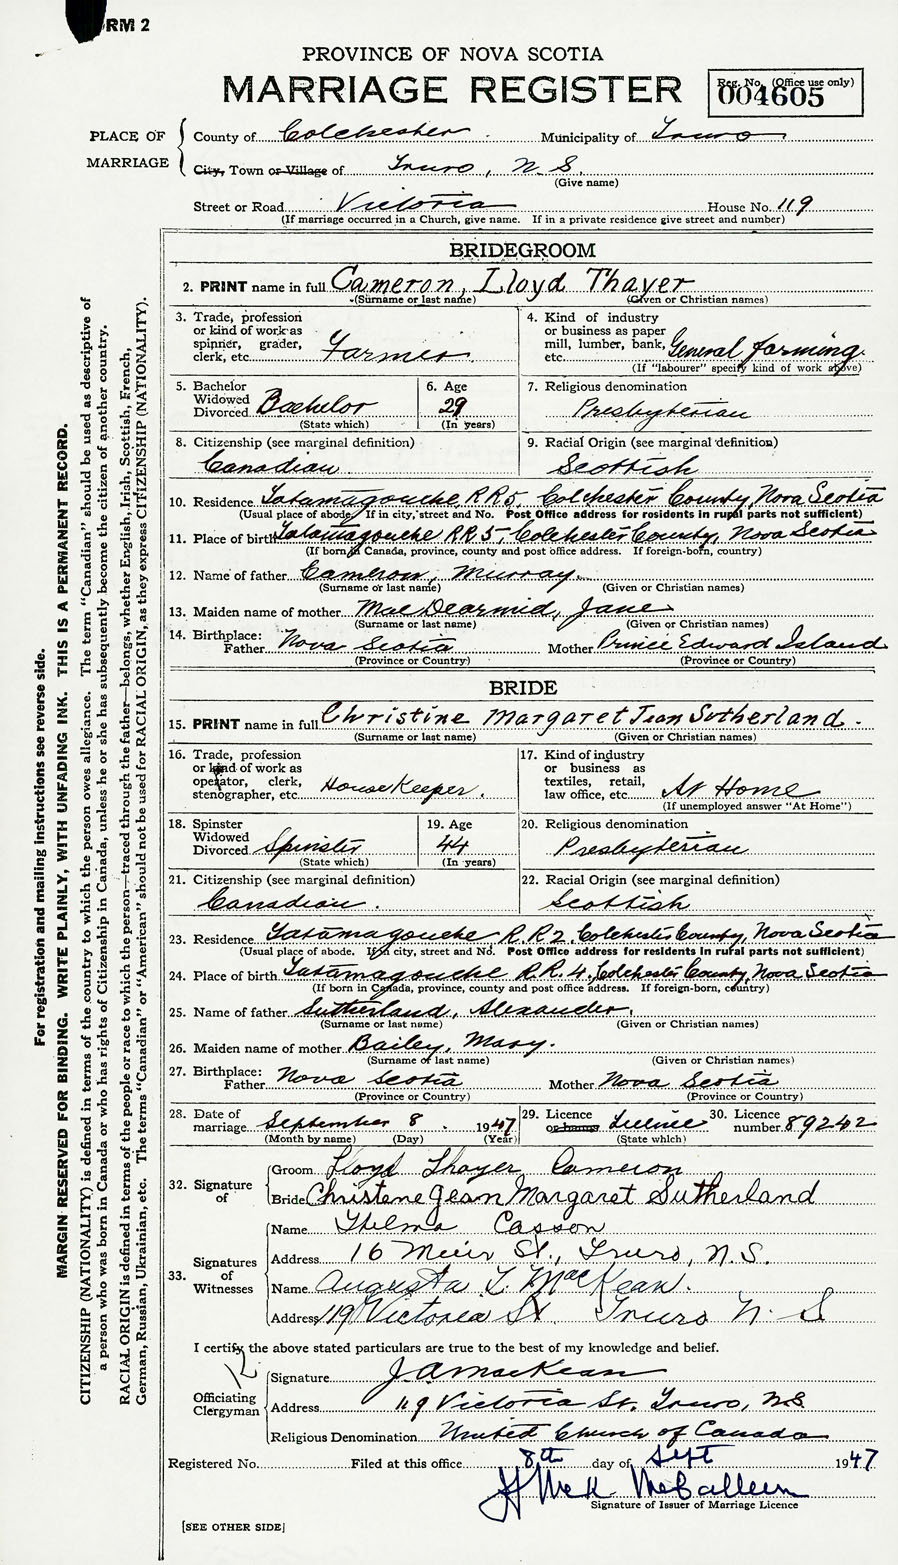 RM 2
PROVINCE OF NOVA SCOTIA
MARRIAGE REGISTER
Reg. No. (Office use only)
004605
PLACE OF MARRIAGE
County of Colchester Municipality of Truro
City, Town or Village of Truro, N S,
(Give name)
Street or Road Victoria House No. 119
(If marriage occurred in a Church, give name. If in a private residence give street and number)
BRIDEGROOM
2. PRINT name in full Cameron, Lloyd Thayer
(Surname or last name) (Given or Christian names)
3. Trade, profession
or kind of work as
spinner, grader,
clerk, etc. Farmer
4. Kind of industry
or business as paper
mill, lumber, bank,
etc. General farming
(If "labourer" specify kind of work above)
5. Bachelor
Widowed
Divorced Bachelor
(State which)
6. Age
29
(In years)
7. Religious denomination
Presbyterian
8. Citizenship (see marginal definition)
Canadian
9. Racial Origin (see marginal definition)
Scottish
10. Residence Tatamagouche RR5, Colchester County, Nova Scotia
(Usual place of abode. If in city, street and No. Post Office address for residents in rural parts not sufficient)
11. Place of birth Tatamagouche RR5, Colchester County, Nova Scotia
(If born in Canada, province, county and post office address. If foreign-born, country)
12. Name of father Cameron, Murray.
(Surname or last name) (Given or Christian names)
13. Maiden name of mother MacDearmid, Jane
(Surname or last name) (Given or Christian names)
14. Birthplace:
Father Nova Scotia Mother Prince Edward Island
(Province or Country) (Province or Country)
BRIDE
15. PRINT name in full Christine Margaret Jean Sutherland.
(Surname or last name) (Given or Christian names)
16. Trade, profession
or kind of work as
operator, clerk,
stenographer, etc. HouseKeeper.
17. Kind of industry
or business as
textiles, retail,
law office, etc. At Home
(If unemployed answer "At Home")
18. Spinster
Widowed
Divorced Spinster
(State which)
19. Age
44
(In years)
20. Religious denomination
Presbyterian
21. Citizenship (see marginal definition)
Canadian.
22. Racial Origin (see marginal definition)
Scottish
23. Residence Tatamagouche R.R.2. Colchester County, Nova Scotia
(Usual place of abode. If in city, street and No. Post Office address for residents in rural parts not sufficient)
24. Place of birth Tatamagouche R.R.4. Colchester County, Nova Scotia
(If born in Canada, province, county and post office address. If foreign-born, country)
25. Name of father Sutherland, Alexander.
(Surname or last name) (Given or Christian names)
26. Maiden name of mother Bailey, Mary.
(Surname or last name) (Given or Christian names)
27. Birthplace:
Father Nova Scotia Mother Nova Scotia
(Province or Country) (Province or Country)
28. Date of
marriage September 8 1947
(Month by name) (Day) (Year)
29. Licence
or banns License
(State which)
30. Licence
number 89242
32. Signature of
Groom Lloyd Thayer Cameron
Bride Christene Jean Margaret Sutherland
33. Signatures of Witnesses
Name Thelma Casson
Address 16 Muir St., Truro, N.S.
Name Augusta L. MacKean.
Address 119 Victoria St. Truro N. S
I certify the above stated particulars are true to the best of my knowledge and belief.
Officiating Clergyman
Signature J A MacKean
Address 119 Victoria St. Truro, N.S.
Religious Denomination United Church of Canada
Registered No. Filed at this office 8th day of Sept 1947
Signature of Issuer of Marriage Licence
[SEE OTHER SIDE]
For registration and mailing instructions see reverse side.
MARGIN RESERVED FOR BINDING. WRITE PLAINLY, WITH UNFADING INK. THIS IS A PERMANENT RECORD.
CITIZENSHIP (NATIONALITY) is defined in terms of the country to which the person owes allegiance. The term "Canadian" should be used as descriptive of
a person who was born in Canada or who has rights of Citizenship in Canada, unless he or she has subsequently become the citizen of another country.
RACIAL ORIGIN is defined in terms of the people or race to which the person—traced through the father—belongs, whether English, Irish, Scottish, French,
German, Russian, Ukrainian, etc. The terms "Canadian" or "American" should not be used for RACIAL ORIGIN, as they express CITIZENSHIP (NATIONALITY).